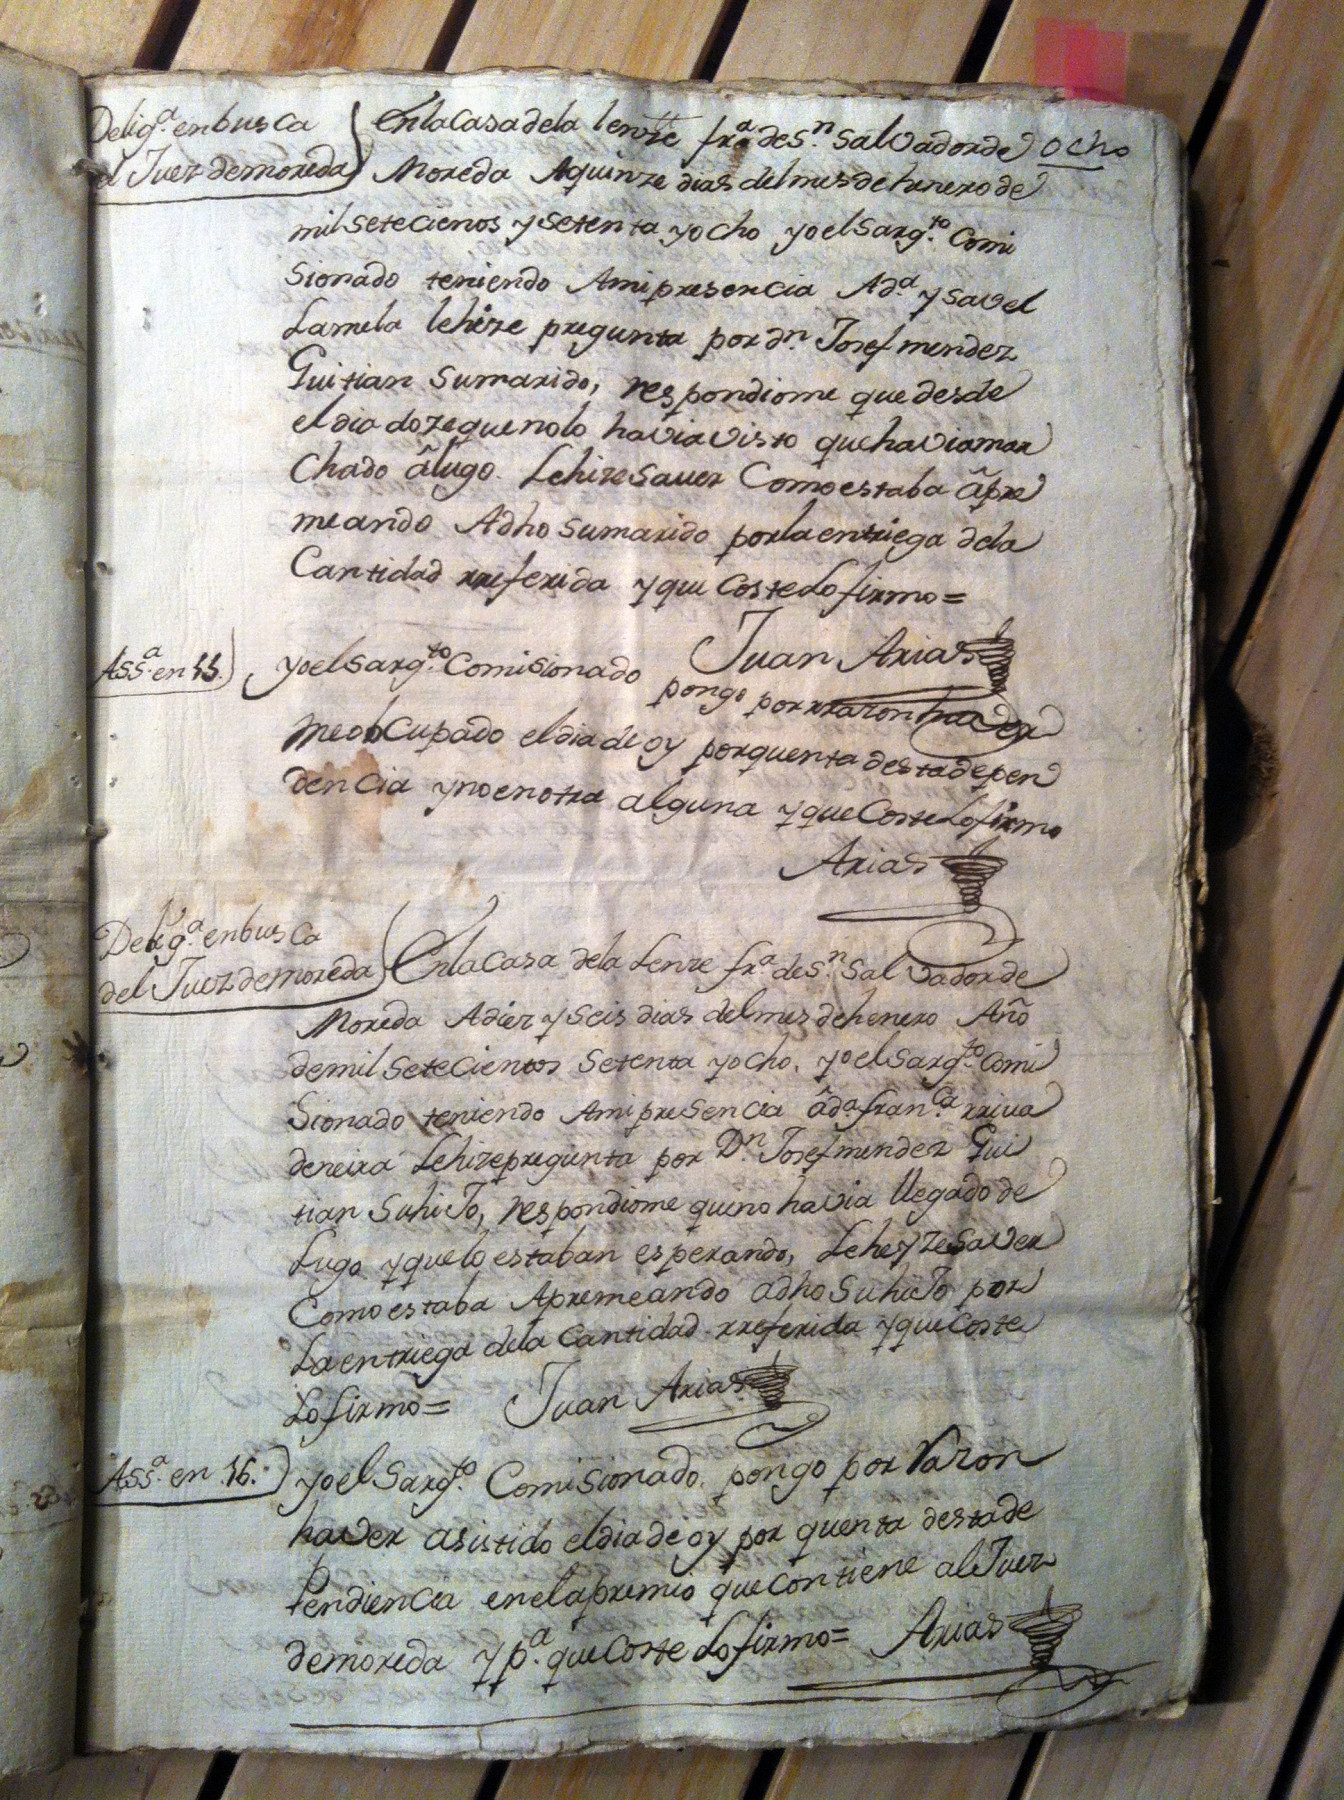 Delig.ª en busca
el Juez de moreda
En la casa de la lenze fr.ª de S.n Salvador de
ocho
Moreda A quinze dias del mes de henero de
mil setecienos y setenta y ocho yo el sarg.to Comi
sionado teniendo Ami presencia A d.ª ysavel
Lamela le hize pregunta por d.n Josef mendez
Guitian su marido, respondiome que desde
el dia doze que no lo havia visto que havia mar
chado â lugo. Le hize saver Como estaba âpre
meando A dho su marido por la entriega de la
Cantidad rreferida y que Coste Lo firmo =
Juan Arias
Ass.ª en 15.
yo el sarg.to Comisionado
pongo por rrazon haver
me obcupado el dia de oy por quenta desta depen
dencia y no en otra alguna y que Coste Lo firmo
Arias
Delig.ª en busca
del Juez de moreda
En la casa de la Lenze fr.ª de S.n Salvador de
Moreda A diez y seis dias del mes de henero Año
de mil setecientos setenta y ocho. yo el sarg.to Comi
sionado teniendo Ami presencia â d.ª fran.ca rriva
deneira Le hize pregunta por D.n Josef mendez Gui
tian su hiJo, respondiome qui no havia llegado de
Lugo y que lo estaban esperando, Le heyze saver
Como estaba Apremeando a dho su hiJo por
La entriega de la Cantidad rreferida y que Coste
Lo firmo =
Juan Arias
Ass.ª en 16.
yo el Sarg.to Comisionado. pongo por Razon
haver asistido el dia de oy por quenta desta de
pendiencia en el apremio que contiene al Juez
de moreda y p.ª que Coste Lo firmo =
Arias